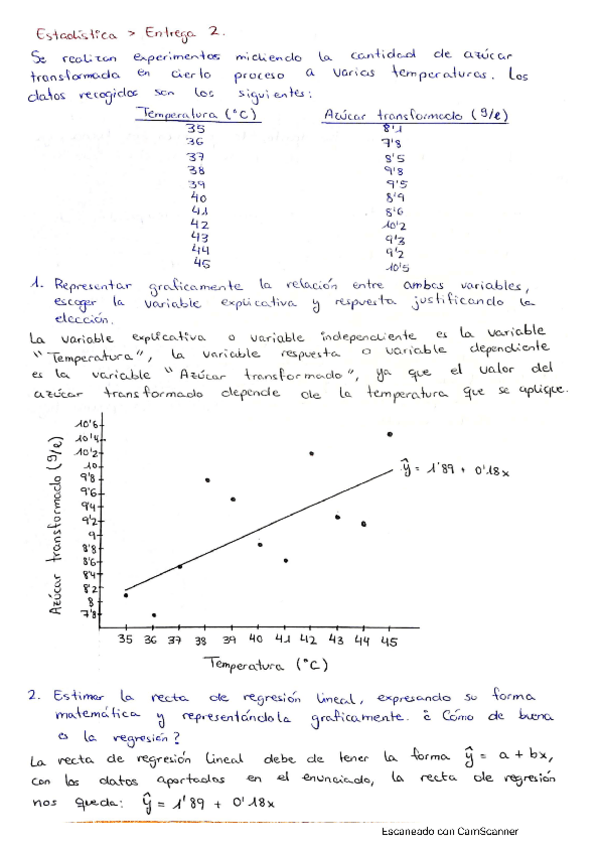 Estadística > Entrega 2.
Se realizan experimentos midiendo la cantidad de azúcar
transformada en cierto proceso a varias temperaturas. Los
datos recogidos son los siguientes:
Temperatura (°C) Azúcar transformado (g/l)
35 8'1
36 7'8
37 8'5
38 9'8
39 9'5
40 8'9
41 8'6
42 10'2
43 9'3
44 9'2
45 10'5
1. Representar graficamente la relación entre ambas variables,
escoger la variable explicativa y respuesta justificando la
elección.
La variable explicativa o variable independiente es la variable
"Temperatura", la variable respuesta o variable dependiente
es la variable "Azúcar transformado", ya que el valor del
azúcar transformado depende de la temperatura que se aplique.
Azúcar transformado (g/l)
10'6
10'4
10'2
10
9'8
9'6
9'4
9'2
9
8'8
8'6
8'4
8'2
8
7'8
ŷ = 1'89 + 0'18x
35 36 37 38 39 40 41 42 43 44 45
Temperatura (°C)
2. Estimar la recta de regresión lineal, expresando su forma
matemática y representándola graficamente. ¿Cómo de buena
es la regresión?
La recta de regresión lineal debe de tener la forma ŷ = a + bx,
con los datos aportados en el enunciado, la recta de regresión
nos queda: ŷ = 1'89 + 0'18x
Escaneado con CamScanner